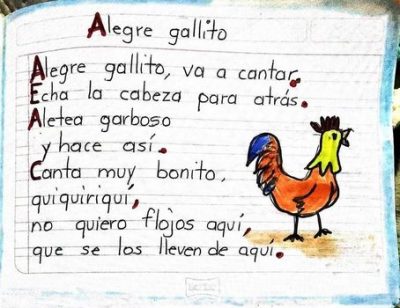 Alegre gallito
Alegre gallito, va a cantar.
Echa la cabeza para atrás.
Aletea garboso
y hace así.
Canta muy bonito,
quiquiriquí,
no quiero flojos aquí,
que se los lleven de aquí.